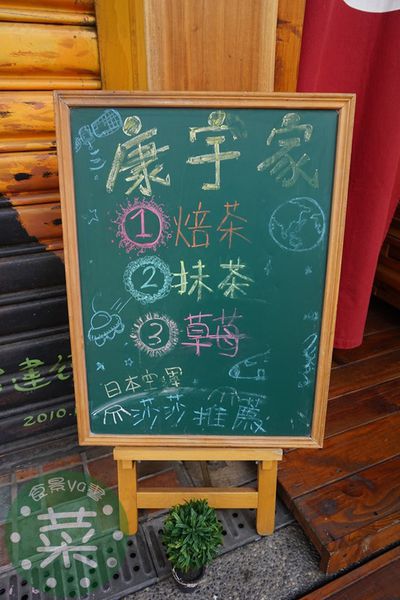 康宇家
1 焙茶
2 抹茶
3 草莓
日本空運
莎莎推薦
達
2010.
食景VO畫
菜